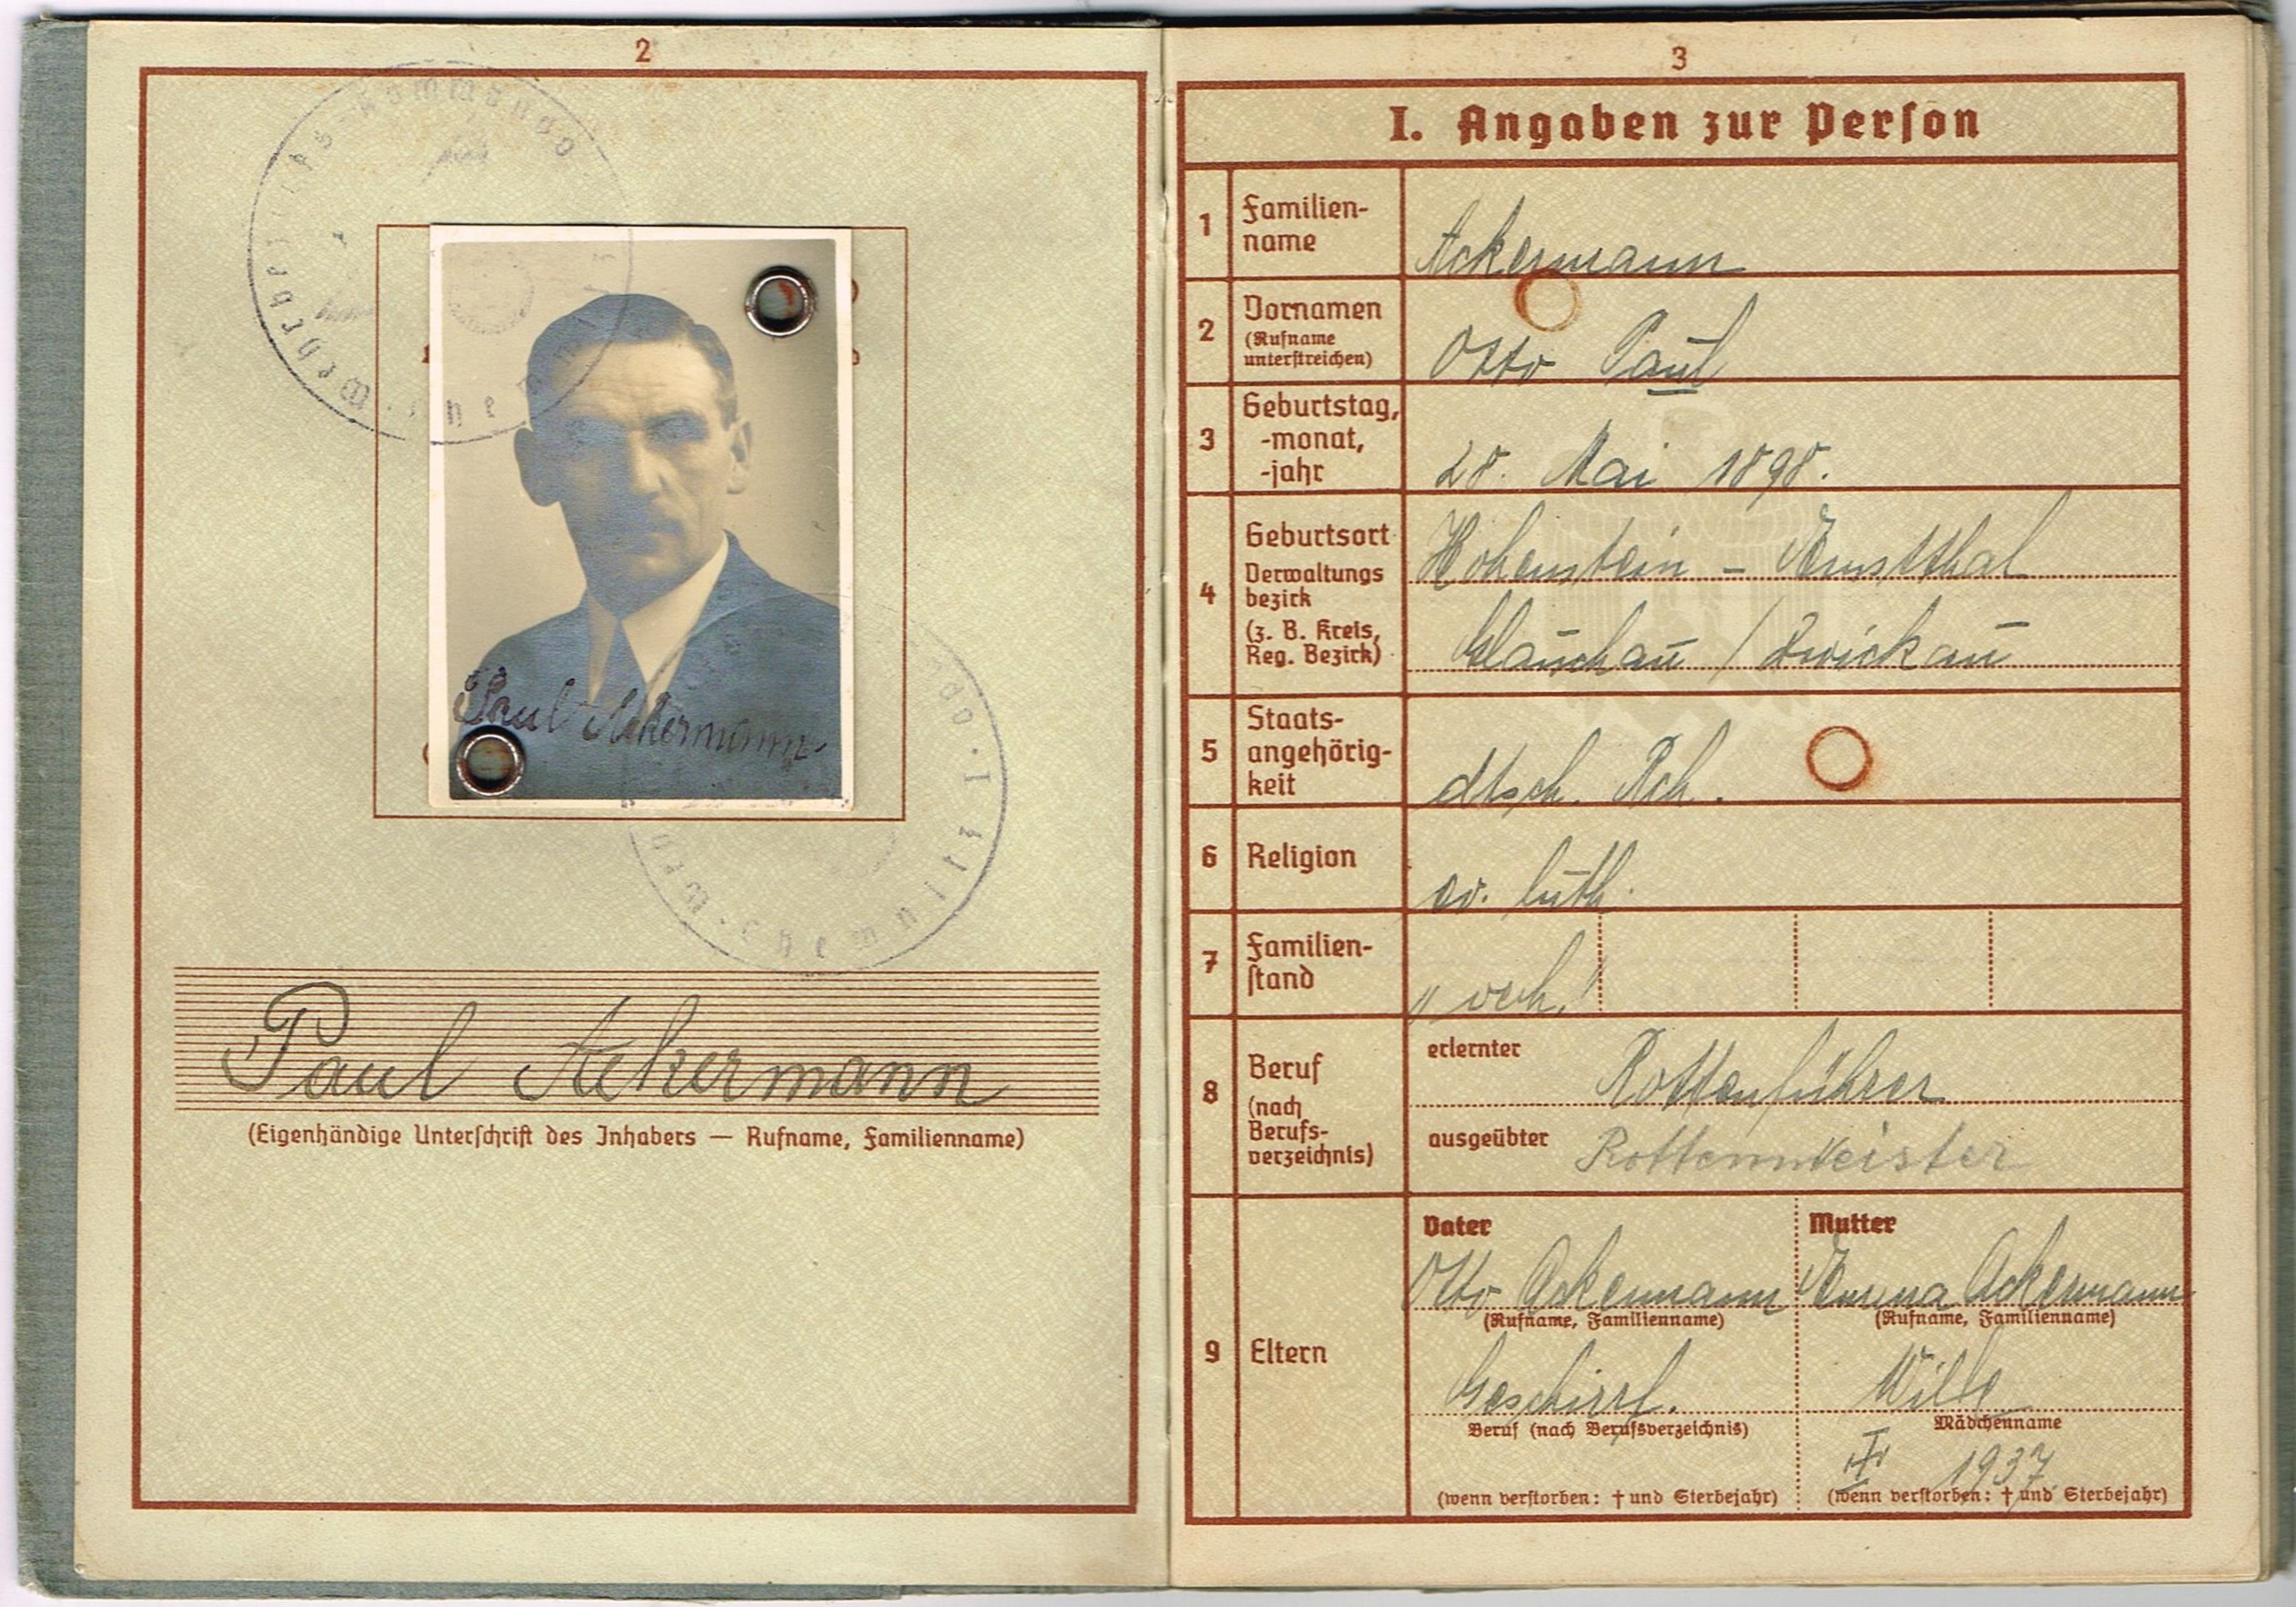 2
Wehrbezirks-Kommando
Chemnitz
Paul Ackermann
Paul Ackermann
(Eigenhändige Unterschrift des Inhabers — Rufname, Familienname)
3
I. Angaben zur Person
1 Familien-
name
Ackermann
2 Vornamen
(Rufname
unterstreichen)
Otto Paul
3 Geburtstag,
-monat,
-jahr
28. Mai 1898.
4 Geburtsort
Verwaltungs
bezirk
(z. B. Kreis,
Reg. Bezirk)
Hohenstein - Ernstthal
Glauchau / Zwickau
5 Staats-
angehörig-
keit
dtsch. Rch.
6 Religion
ev. luth.
7 Familien-
stand
verh.
8 Beruf
(nach
Berufs-
verzeichnis)
erlernter Rottenführer
ausgeübter Rottenmeister
9 Eltern
Vater
Otto Ackermann
(Rufname, Familienname)
Geschirrf.
Beruf (nach Berufsverzeichnis)
(wenn verstorben: † und Sterbejahr)
Mutter
Emma Ackermann
(Rufname, Familienname)
Mädchenname
1937
(wenn verstorben: † und Sterbejahr)